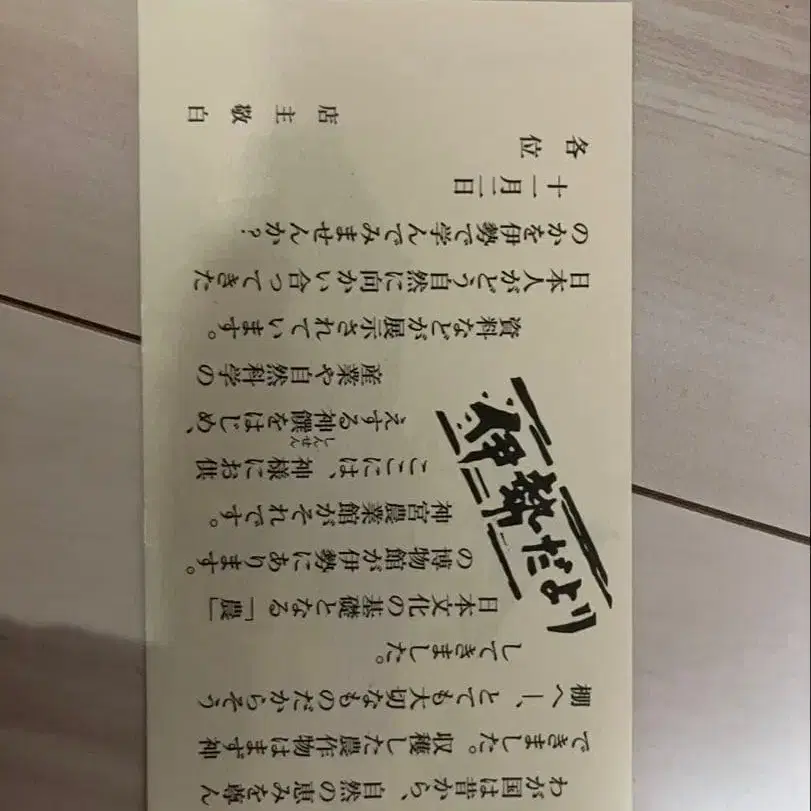 伊勢だより
わが国は昔から、自然の恵みを尊ん
できました。収穫した農作物はまず神
棚へ―、とても大切なものだからそう
してきました。
日本文化の基礎となる「農」
の博物館が伊勢にあります。
神宮農業館がそれです。
ここには、神様にお供
えする神饌をはじめ、
しんせん
産業や自然科学の
資料などが展示されています。
日本人がどう自然に向かい合ってきた
のかを伊勢で学んでみませんか?
十一月一日
各位
店主敬白